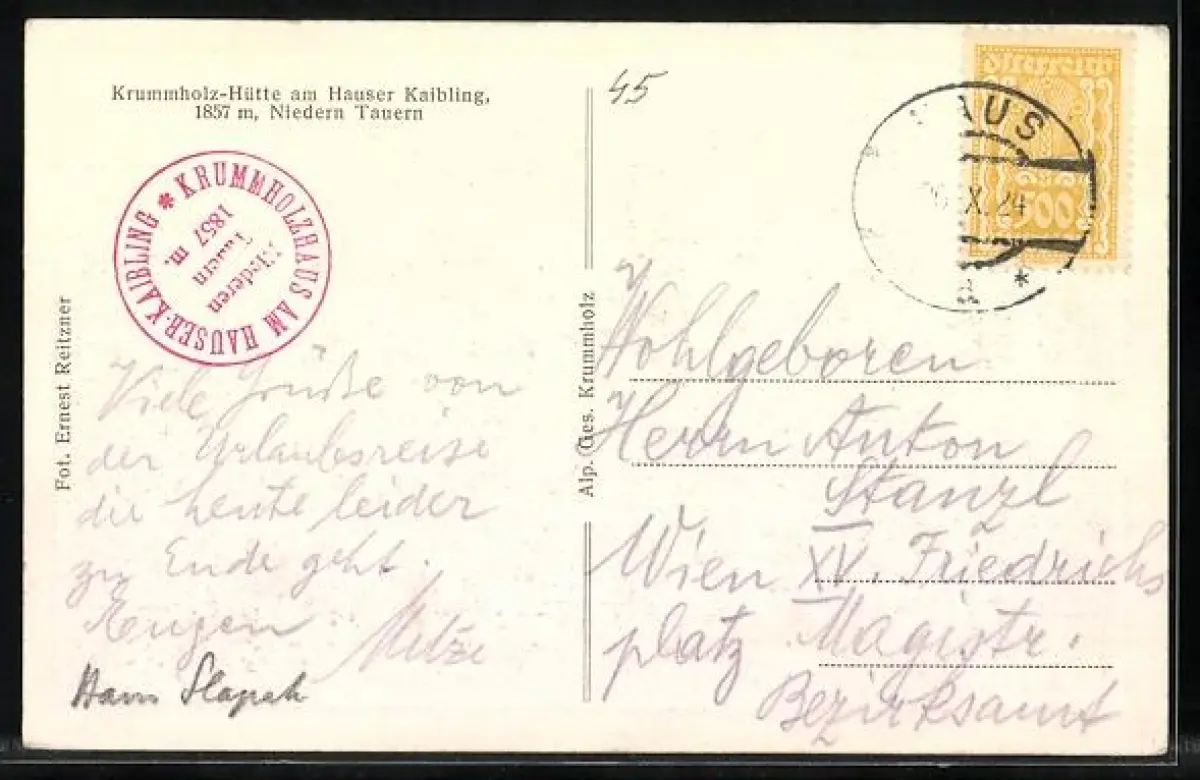 Krummholz-Hütte am Hauser Kaibling,
1857 m, Niedern Tauern
KRUMMHOLZHAUS AM HAUSER-KAIBLING *
Niederen
Tauern
1857 m.
Fot. Ernest Reitzner
Viele Grüße von
der Urlaubsreise
die heute leider
zu Ende geht.
Eugen Mitzi
Hans Slapak
Alp. Ges. Krummholz
45
Österreich
500
HAUS
X. 24
*
Wohlgeboren
Herrn Anton
Stanzl
Wien XV. Friedrichs
platz Magistr.
Bezirksamt